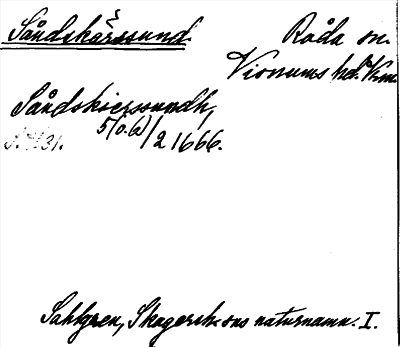 Såndskärssund. Råda sn.
Visnums hd. Vrm.
Såndskierssundh,
5(o.6)/2 1666.
Sahlgren, Skagershs ons naturnamn. I.